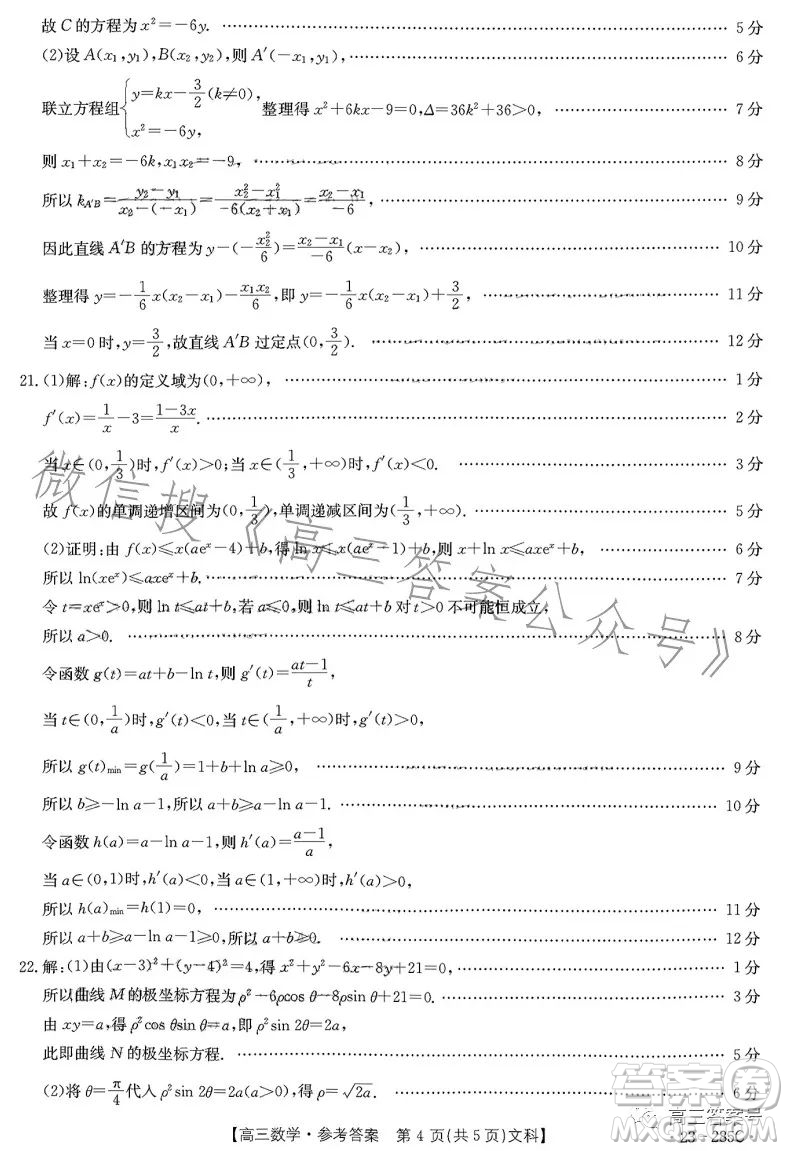 故 C 的方程为 x²=-6y. 5 分
(2)设 A(x₁,y₁),B(x₂,y₂),则 A′(-x₁,y₁), 6 分
联立方程组{y=kx-3/2(k≠0), x²=-6y, 整理得 x²+6kx-9=0,Δ=36k²+36>0, 7 分
则 x₁+x₂=-6k,x₁x₂=-9, 8 分
所以 k_{A′B}=(y₂-y₁)/(x₂-(-x₁))=(x₂²-x₁²)/(-6(x₂+x₁))=(x₂-x₁)/(-6), 9 分
因此直线 A′B 的方程为 y-(-x₂²/6)=(x₂-x₁)/(-6)(x-x₂), 10 分
整理得 y=-1/6x(x₂-x₁)-x₁x₂/6,即 y=-1/6x(x₂-x₁)+3/2, 11 分
当 x=0 时,y=3/2,故直线 A′B 过定点(0,3/2). 12 分
21. (1)解:f(x)的定义域为(0,+∞), 1 分
f′(x)=1/x-3=(1-3x)/x. 2 分
当 x∈(0,1/3)时,f′(x)>0;当 x∈(1/3,+∞)时,f′(x)<0. 3 分
故 f(x)的单调递增区间为(0,1/3),单调递减区间为(1/3,+∞). 5 分
(2)证明:由 f(x)≤x(aeˣ-4)+b,得 ln x≤x(aeˣ-1)+b,则 x+ln x≤axeˣ+b, 6 分
所以 ln(xeˣ)≤axeˣ+b. 7 分
令 t=xeˣ>0,则 ln t≤at+b,若 a≤0,则 ln t≤at+b 对 t>0 不可能恒成立,
所以 a>0. 8 分
令函数 g(t)=at+b-ln t,则 g′(t)=(at-1)/t,
当 t∈(0,1/a)时,g′(t)<0,当 t∈(1/a,+∞)时,g′(t)>0,
所以 g(t)min=g(1/a)=1+b+ln a≥0, 9 分
所以 b≥-ln a-1,所以 a+b≥a-ln a-1. 10 分
令函数 h(a)=a-ln a-1,则 h′(a)=(a-1)/a,
当 a∈(0,1)时,h′(a)<0,当 a∈(1,+∞)时,h′(a)>0,
所以 h(a)min=h(1)=0, 11 分
所以 a+b≥a-ln a-1≥0,所以 a+b≥0. 12 分
22. 解:(1)由(x-3)²+(y-4)²=4,得 x²+y²-6x-8y+21=0, 1 分
所以曲线 M 的极坐标方程为 ρ²-6ρcos θ-8ρsin θ+21=0. 3 分
由 xy=a,得 ρ²cos θsin θ=a,即 ρ²sin 2θ=2a,
此即曲线 N 的极坐标方程. 5 分
(2)将 θ=π/4代入 ρ²sin 2θ=2a(a>0),得 ρ=√2a. 6 分
【高三数学·参考答案 第 4 页(共 5 页)文科】
23-235C
微信搜《高三答案公众号》
高三答案号
答案圈
MXQE.COM